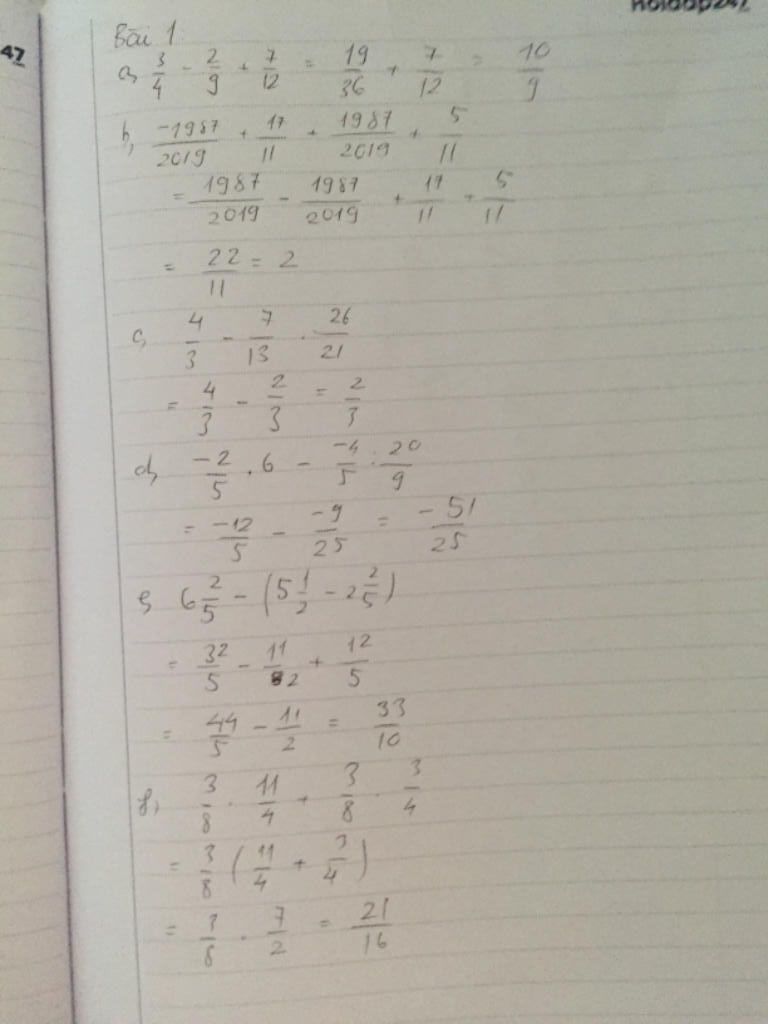 hoidap247
47
Bài 1
a, 3/4 - 2/9 + 7/12 = 19/36 + 7/12 = 10/9
b, -1987/2019 + 17/11 + 1987/2019 + 5/11
= 1987/2019 - 1987/2019 + 17/11 + 5/11
= 22/11 = 2
c, 4/3 - 7/13 . 26/21
= 4/3 - 2/3 = 2/3
d, -2/5 . 6 - -4/5 . 20/9
= -12/5 - -9/25 = -51/25
e, 6 2/5 - (5 1/2 - 2 2/5)
= 32/5 - 11/2 + 12/5
= 44/5 - 11/2 = 33/10
f, 3/8 . 11/4 + 3/8 . 3/4
= 3/8 (11/4 + 3/4)
= 3/8 . 7/2 = 21/16